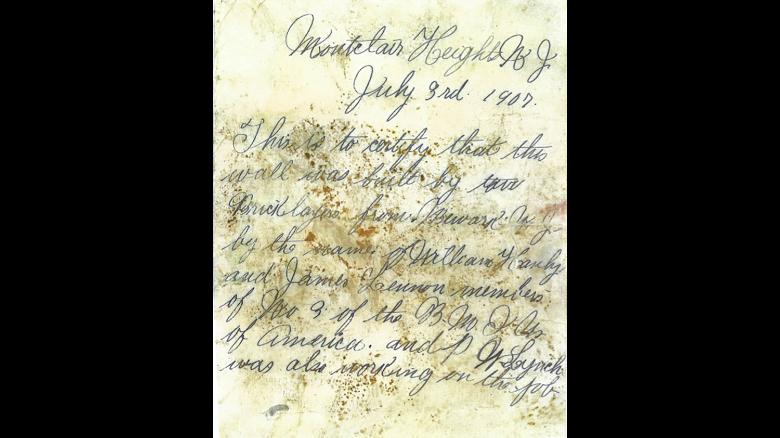 Montclair Heights N J.
July 3rd. 1907.
This is to certify that this
wall was built by two
Bricklayers from Newark. N. J.
by the names of William Hanly
and James Lennon members
of No 3. of the B. M. I. U.
of America. and P W Lynch
was also working on the job